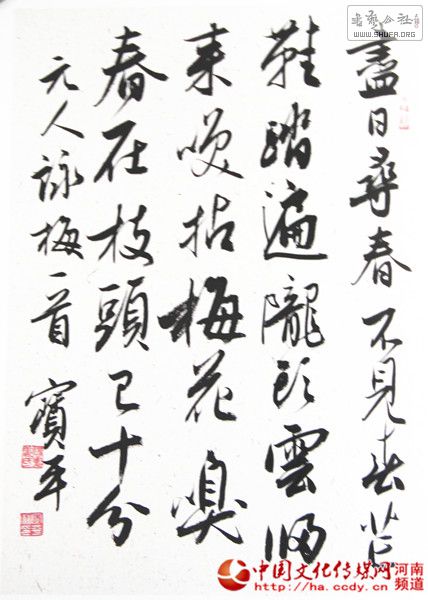 盡日尋春不見春芒
鞋踏遍隴頭雲歸
來咲拈梅花嗅
春在枝頭已十分
元人詠梅一首 寶平
书艺公社
WWW.SHUFA.ORG
中国文化传媒网 河南频道
http://ha.ccdy.cn